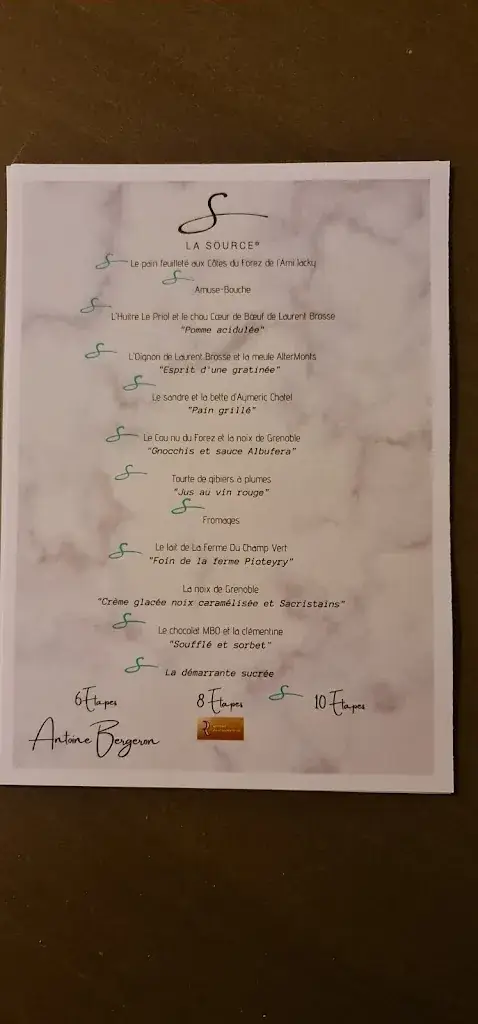 S
LA SOURCE®
Le pain feuilleté aux Côtes du Forez de l'Ami Jacky
Amuse-Bouche
L'Huître Le Priol et le chou Cœur de Bœuf de Laurent Brosse
"Pomme acidulée"
L'Oignon de Laurent Brosse et la meule AlterMonts
"Esprit d'une gratinée"
Le sandre et la bette d'Aymeric Chatel
"Pain grillé"
Le Cou nu du Forez et la noix de Grenoble
"Gnocchis et sauce Albufera"
Tourte de gibiers à plumes
"Jus au vin rouge"
Fromages
Le lait de La Ferme Du Champ Vert
"Foin de la ferme Pioteyry"
La noix de Grenoble
"Crème glacée noix caramélisée et Sacristains"
Le chocolat MBO et la clémentine
"Soufflé et sorbet"
La démarrante sucrée
6 Etapes 8 Etapes 10 Etapes
Antoine Bergeron